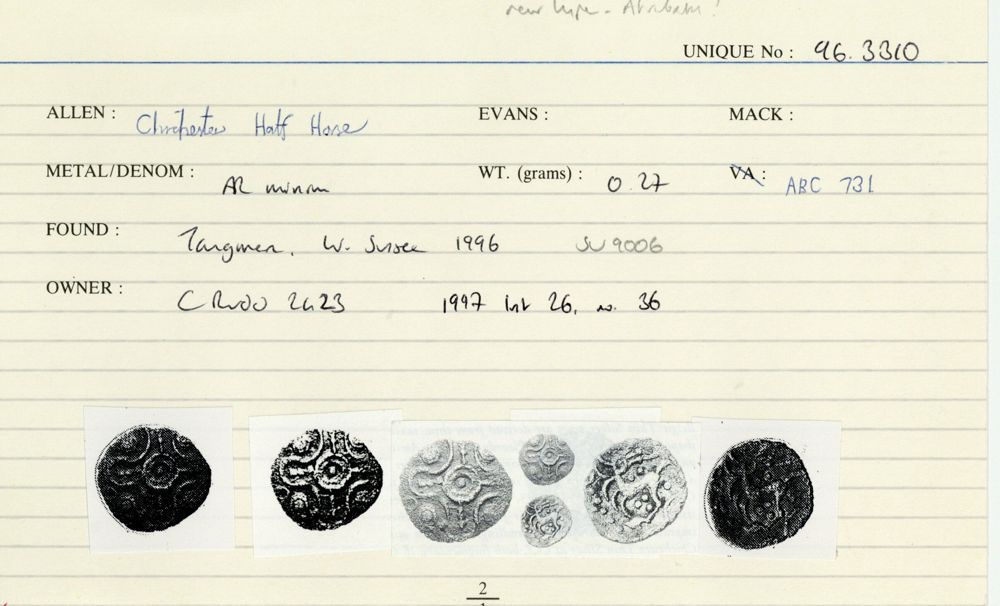 new type - Atrebatic!
UNIQUE No : 96.3310
ALLEN : Chichester Half Horse EVANS : MACK :
METAL/DENOM : AR minim WT. (grams) : 0.27 VA : ABC 731
FOUND : Tangmere, W. Sussex 1996 SU 9006
OWNER : C Rudd 26.23 1997 list 26, no. 36
2